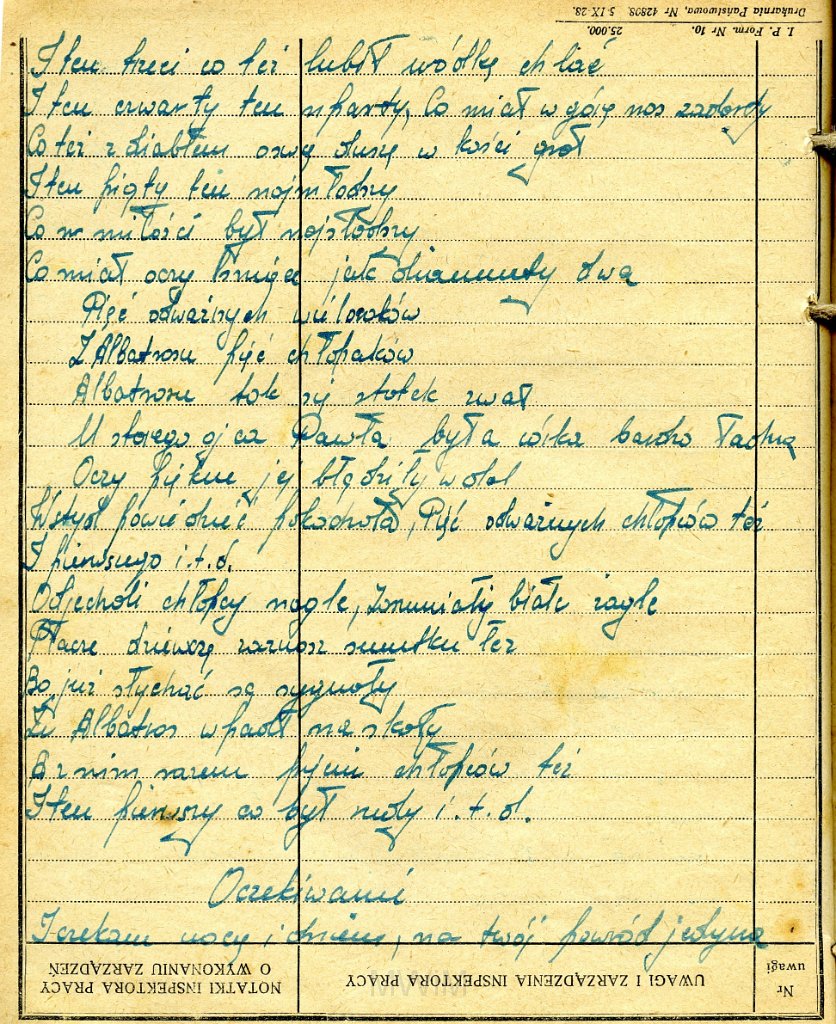 I. P. Form. Nr 10. 25.000.
Drukarnia Państwowa, Nr 42808. 5-IX-28.
I ten trzeci co też lubił wódkę chlać
I ten czwarty ten uparty, Co miał w górę nos zadarty
Co też z diabłem swą duszę w kości grał
I ten piąty ten najmłodszy
Co w miłości był najsłodszy
Co miał oczy lśniące jak diamenty dwa
Pięć odważnych wilczków
Z Albatrosu pięć chłopaków
Albatrosu tak się statek zwał
U starego ojca Pawła była córka bardzo ładna
Oczy piękne jej błądziły w dal
Wstyd powiedzieć pokochała, Pięć odważnych chłopców też
I pierwszego i.t.d.
Odjechali chłopcy nagle, Zaszumiały białe żagle
Płacze dziewczę smutku łez
Bo już słychać są sygnały
Że Albatros wpadł na skały
A z nim razem pięciu chłopców też
I ten pierwszy co był i.t.d.
Oczekiwanie
I czekam nocą i dniem, na twój powród jedyna
NOTATKI INSPEKTORA PRACY O WYKONANIU ZARZĄDZEŃ
UWAGI I ZARZĄDZENIA INSPEKTORA PRACY
Nr uwagi